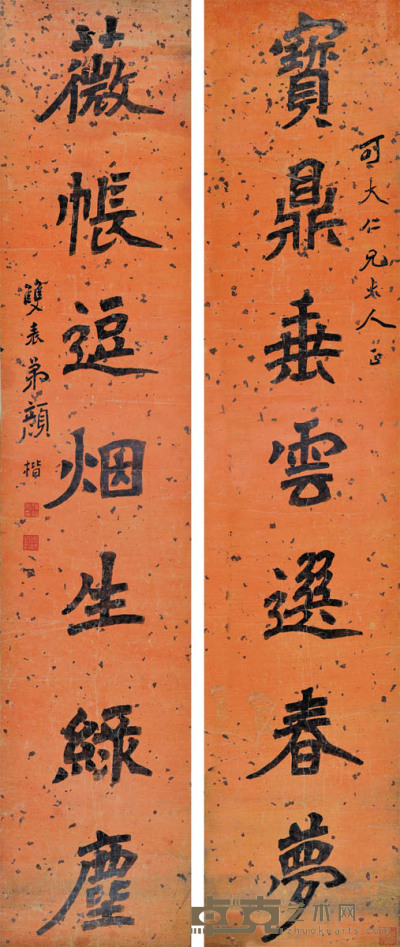 寶鼎垂雲選春夢
可大仁兄 人正
薇帳逗烟生綠塵
雙表弟顏楷
卓克艺术网